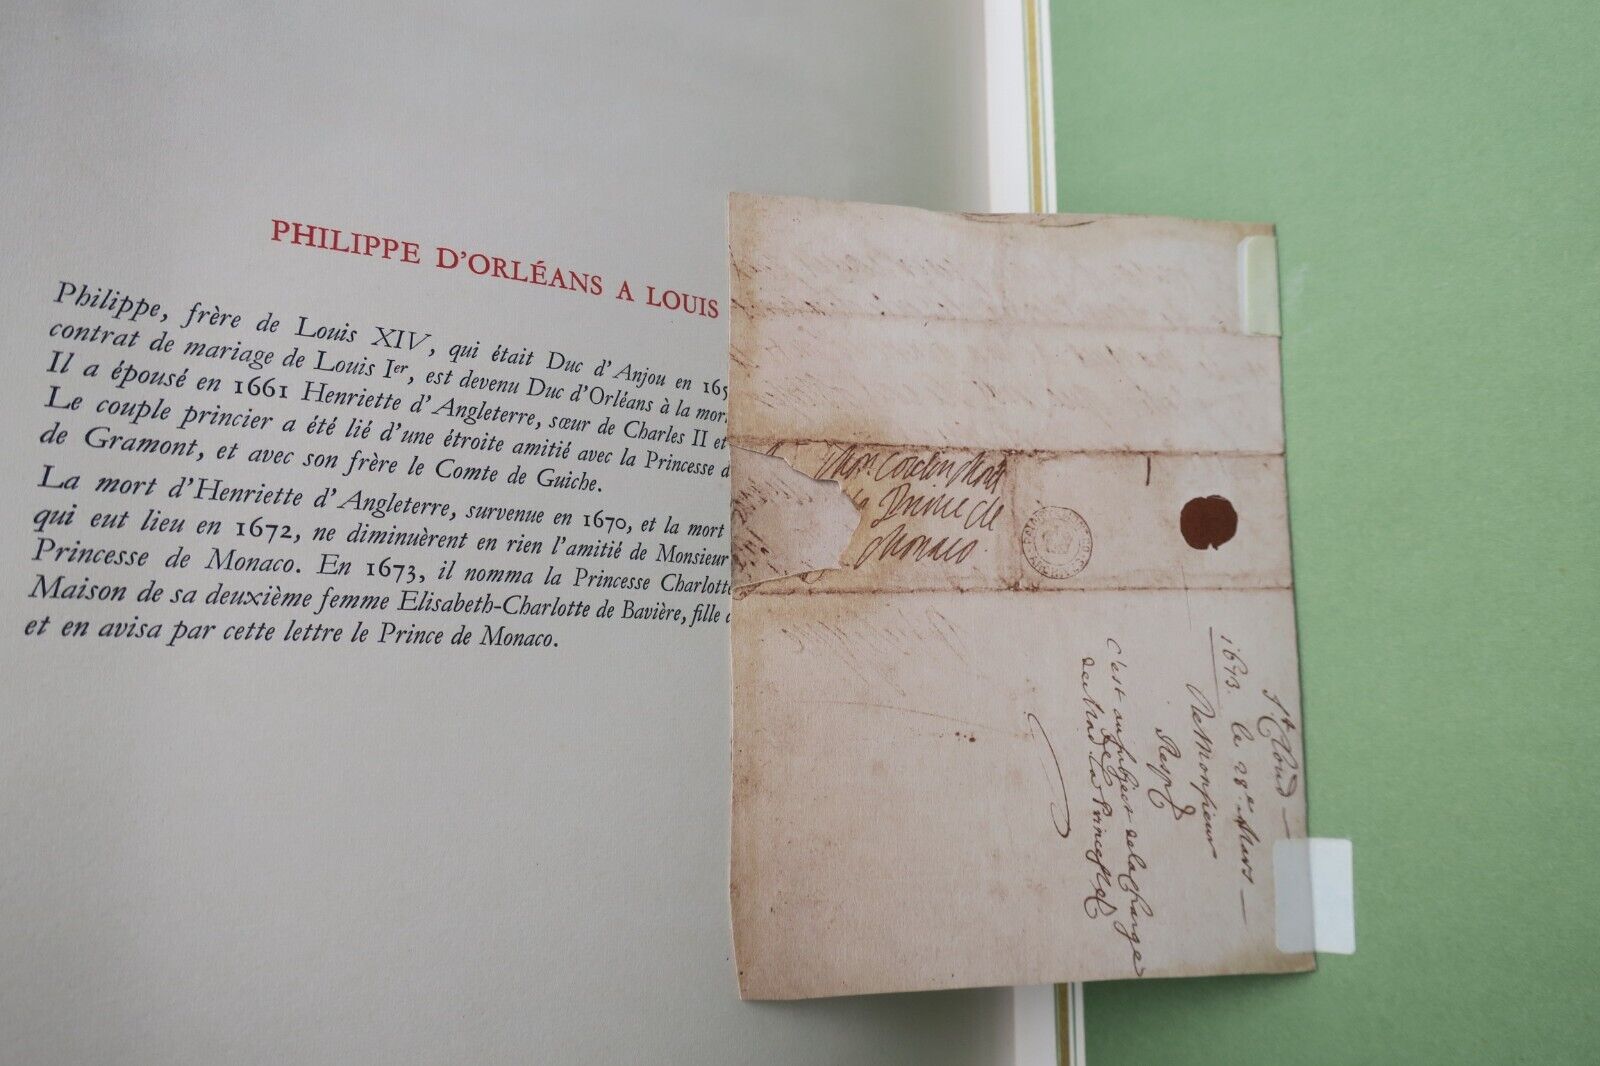 PHILIPPE D'ORLÉANS A LOUIS
Philippe, frère de Louis XIV, qui était Duc d'Anjou en 165
contrat de mariage de Louis Ier, est devenu Duc d'Orléans à la mor
Il a épousé en 1661 Henriette d'Angleterre, sœur de Charles II et
Le couple princier a été lié d'une étroite amitié avec la Princesse d
de Gramont, et avec son frère le Comte de Guiche.
La mort d'Henriette d'Angleterre, survenue en 1670, et la mort
qui eut lieu en 1672, ne diminuèrent en rien l'amitié de Monsieur
Princesse de Monaco. En 1673, il nomma la Princesse Charlotte
Maison de sa deuxième femme Elisabeth-Charlotte de Bavière, fille d
et en avisa par cette lettre le Prince de Monaco.
Mon Cousin
Prince de
Monaco
St Cloud
1673. le 28e Mars
De Monsieur
Resp
c'est au subiect de la charge
de Mad. la Princesse